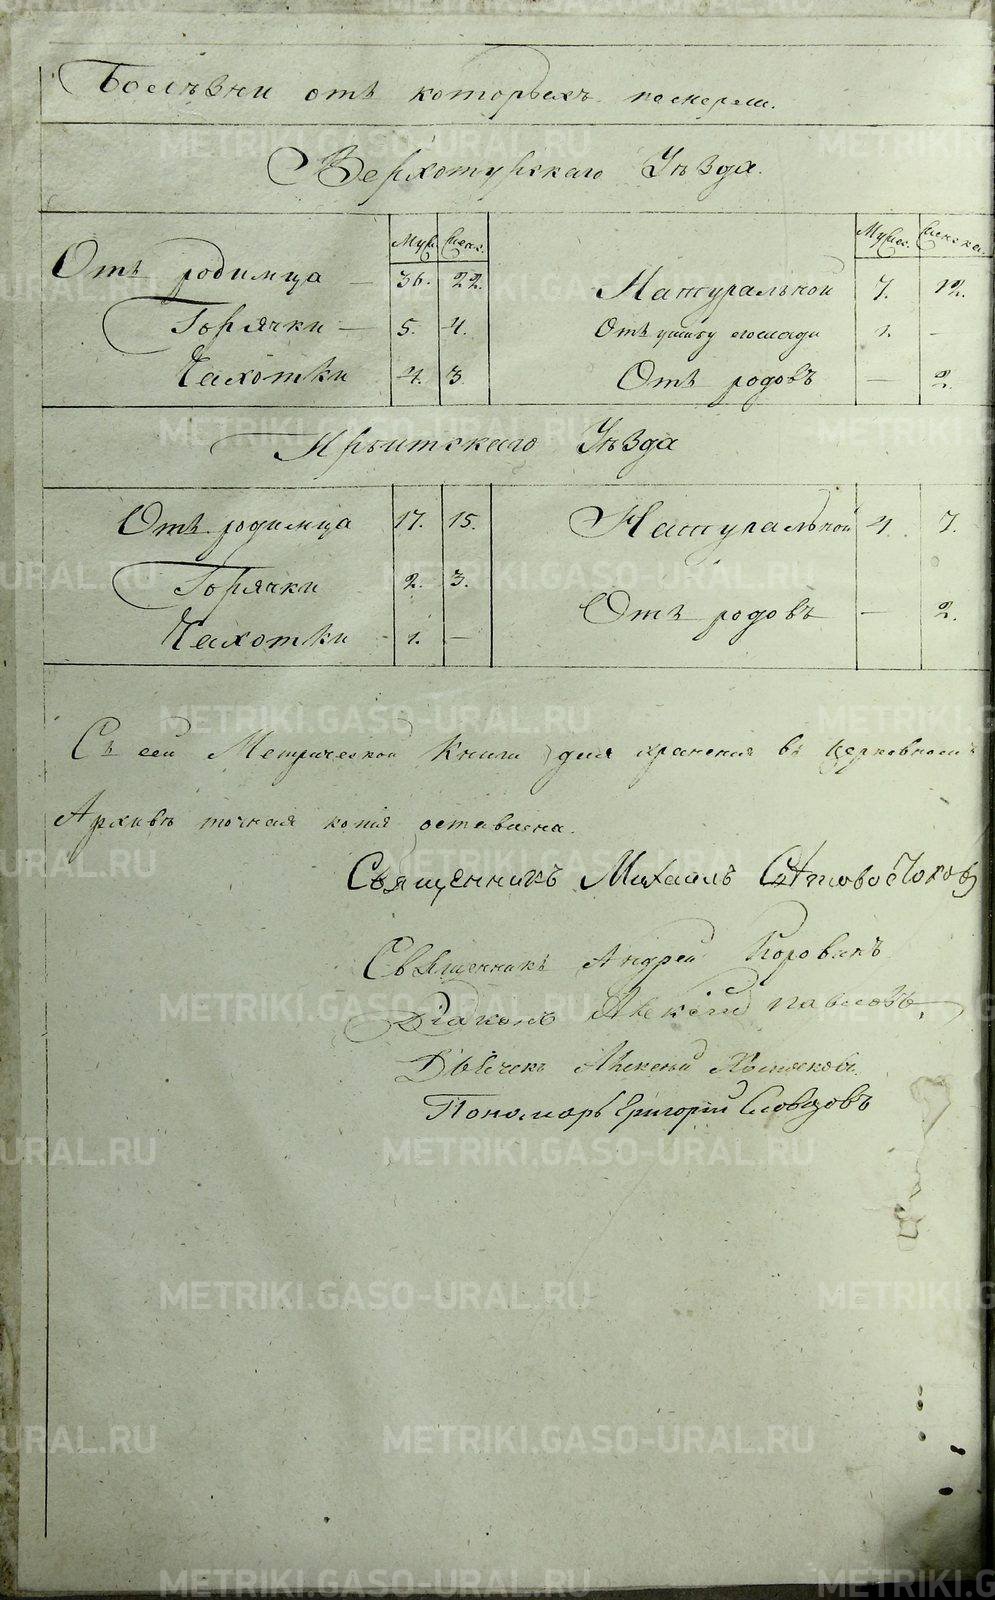 Болѣзни отъ которыхъ померли.
Верхотурскаго Уѣзда.
Муж. Женс. Мужес. Женска.
Отъ родимца — 36. 22. Натуральной 7. 12.
Горячки — 5. 4. Отъ ушибу лошади 1. —
Чахотки 4. 3. Отъ родовъ — 2.
Ирбитскаго Уѣзда
Отъ родимца 17. 15. Натуральной 4. 7.
Горячки 2. 3.
Отъ родовъ — 2.
Чахотки 1. —
Съ сей Метрической Книги для хранения въ Церковномъ
Архивѣ точная копiя оставлена.
Священникъ Михаилъ
Священникъ Андрей
Дiаконъ Алексiй Павловъ.
Дьячекъ Алексей Хомяковъ.
Пономорь Григорiй Словцовъ
METRIKI.GASO-URAL.RU